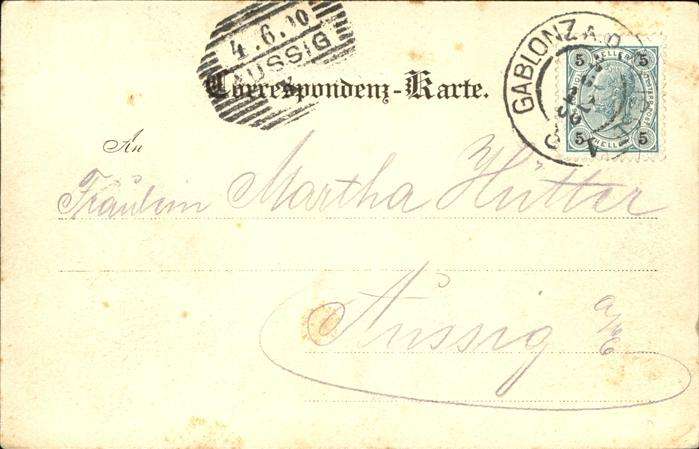 4.6.00
AUSSIG
GABLONZ A.
5 5
5 5
Correspondenz-Karte.
An
Fräulein Martha Hütter
Aussig a/E